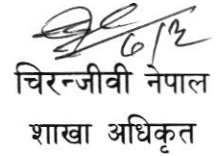 ६/२
चिरन्जीवी नेपाल
शाखा अधिकृत